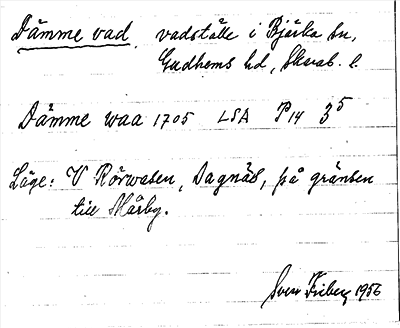 Dämme vad, vadställe i Bjärka sn,
Gudhems hd, Skarab. l.
Dämme waa 1705 LSA P14 3⁵
Läge: V Rörwasen, Dagnäs, på gränsen
till Marby.
Sven Friberg 1956